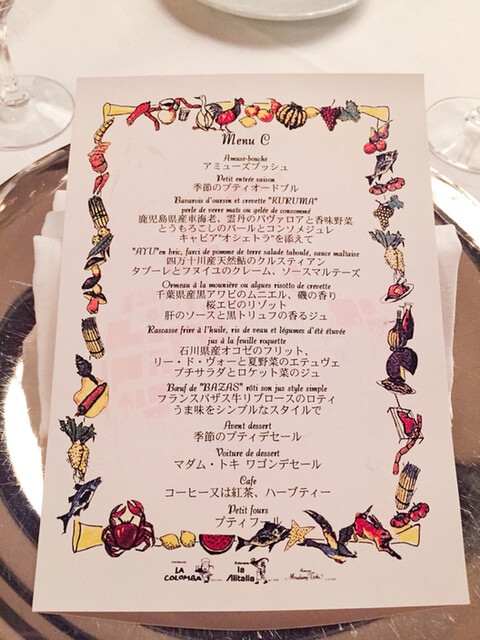 Menu C
Amuse-bouche
アミューズブッシュ
Petit entrée saison
季節のプティオードブル
Bavarois d'oursin et crevette "KURUMA"
perle de verre maïs ou gelée de consommé
鹿児島県産車海老、雲丹のバヴァロアと香味野菜
とうもろこしのパールとコンソメジュレ
キャビア"オシェトラ"を添えて
"AYU"en bric, farci de pomme de terre salade taboulé, sauce maltaise
四万十川産天然鮎のクルスティアン
タブーレとフヌイユのクレーム、ソースマルテーズ
Ormeau à la mounière ou algues risotto de crevette
千葉県産黒アワビのムニエル、磯の香り
桜エビのリゾット
肝のソースと黒トリュフの香るジュ
Rascasse frire à l'huile, ris de veau et légumes d'été étuvée
jus à la feuille roquette
石川県産オコゼのフリット、
リー・ド・ヴォーと夏野菜のエテュヴェ
プチサラダとロケット菜のジュ
Bœuf de "BAZAS" rôti son jus style simple
フランスバザス牛リブロースのロティ
うま味をシンプルなスタイルで
Avent dessert
季節のプティデセール
Voiture de dessert
マダム・トキ ワゴンデセール
Cafe
コーヒー又は紅茶、ハーブティー
Petit fours
プティフール
LA COLOMBA
la Alitalia
Madame Toki